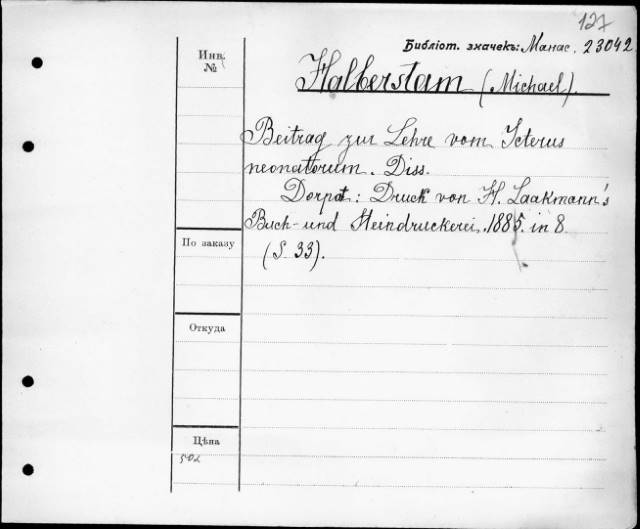 127
Библіот. значекъ: Манас. 23042
Инв. №
Halberstam (Michael).
Beitrag zur Lehre vom Icterus
neonatorum. Diss.
Dorpat: Druck von H. Laakmann's
Buch- und Steindruckerei. 1885. in 8.
(S. 33).
По заказу
Откуда
Цѣна
502